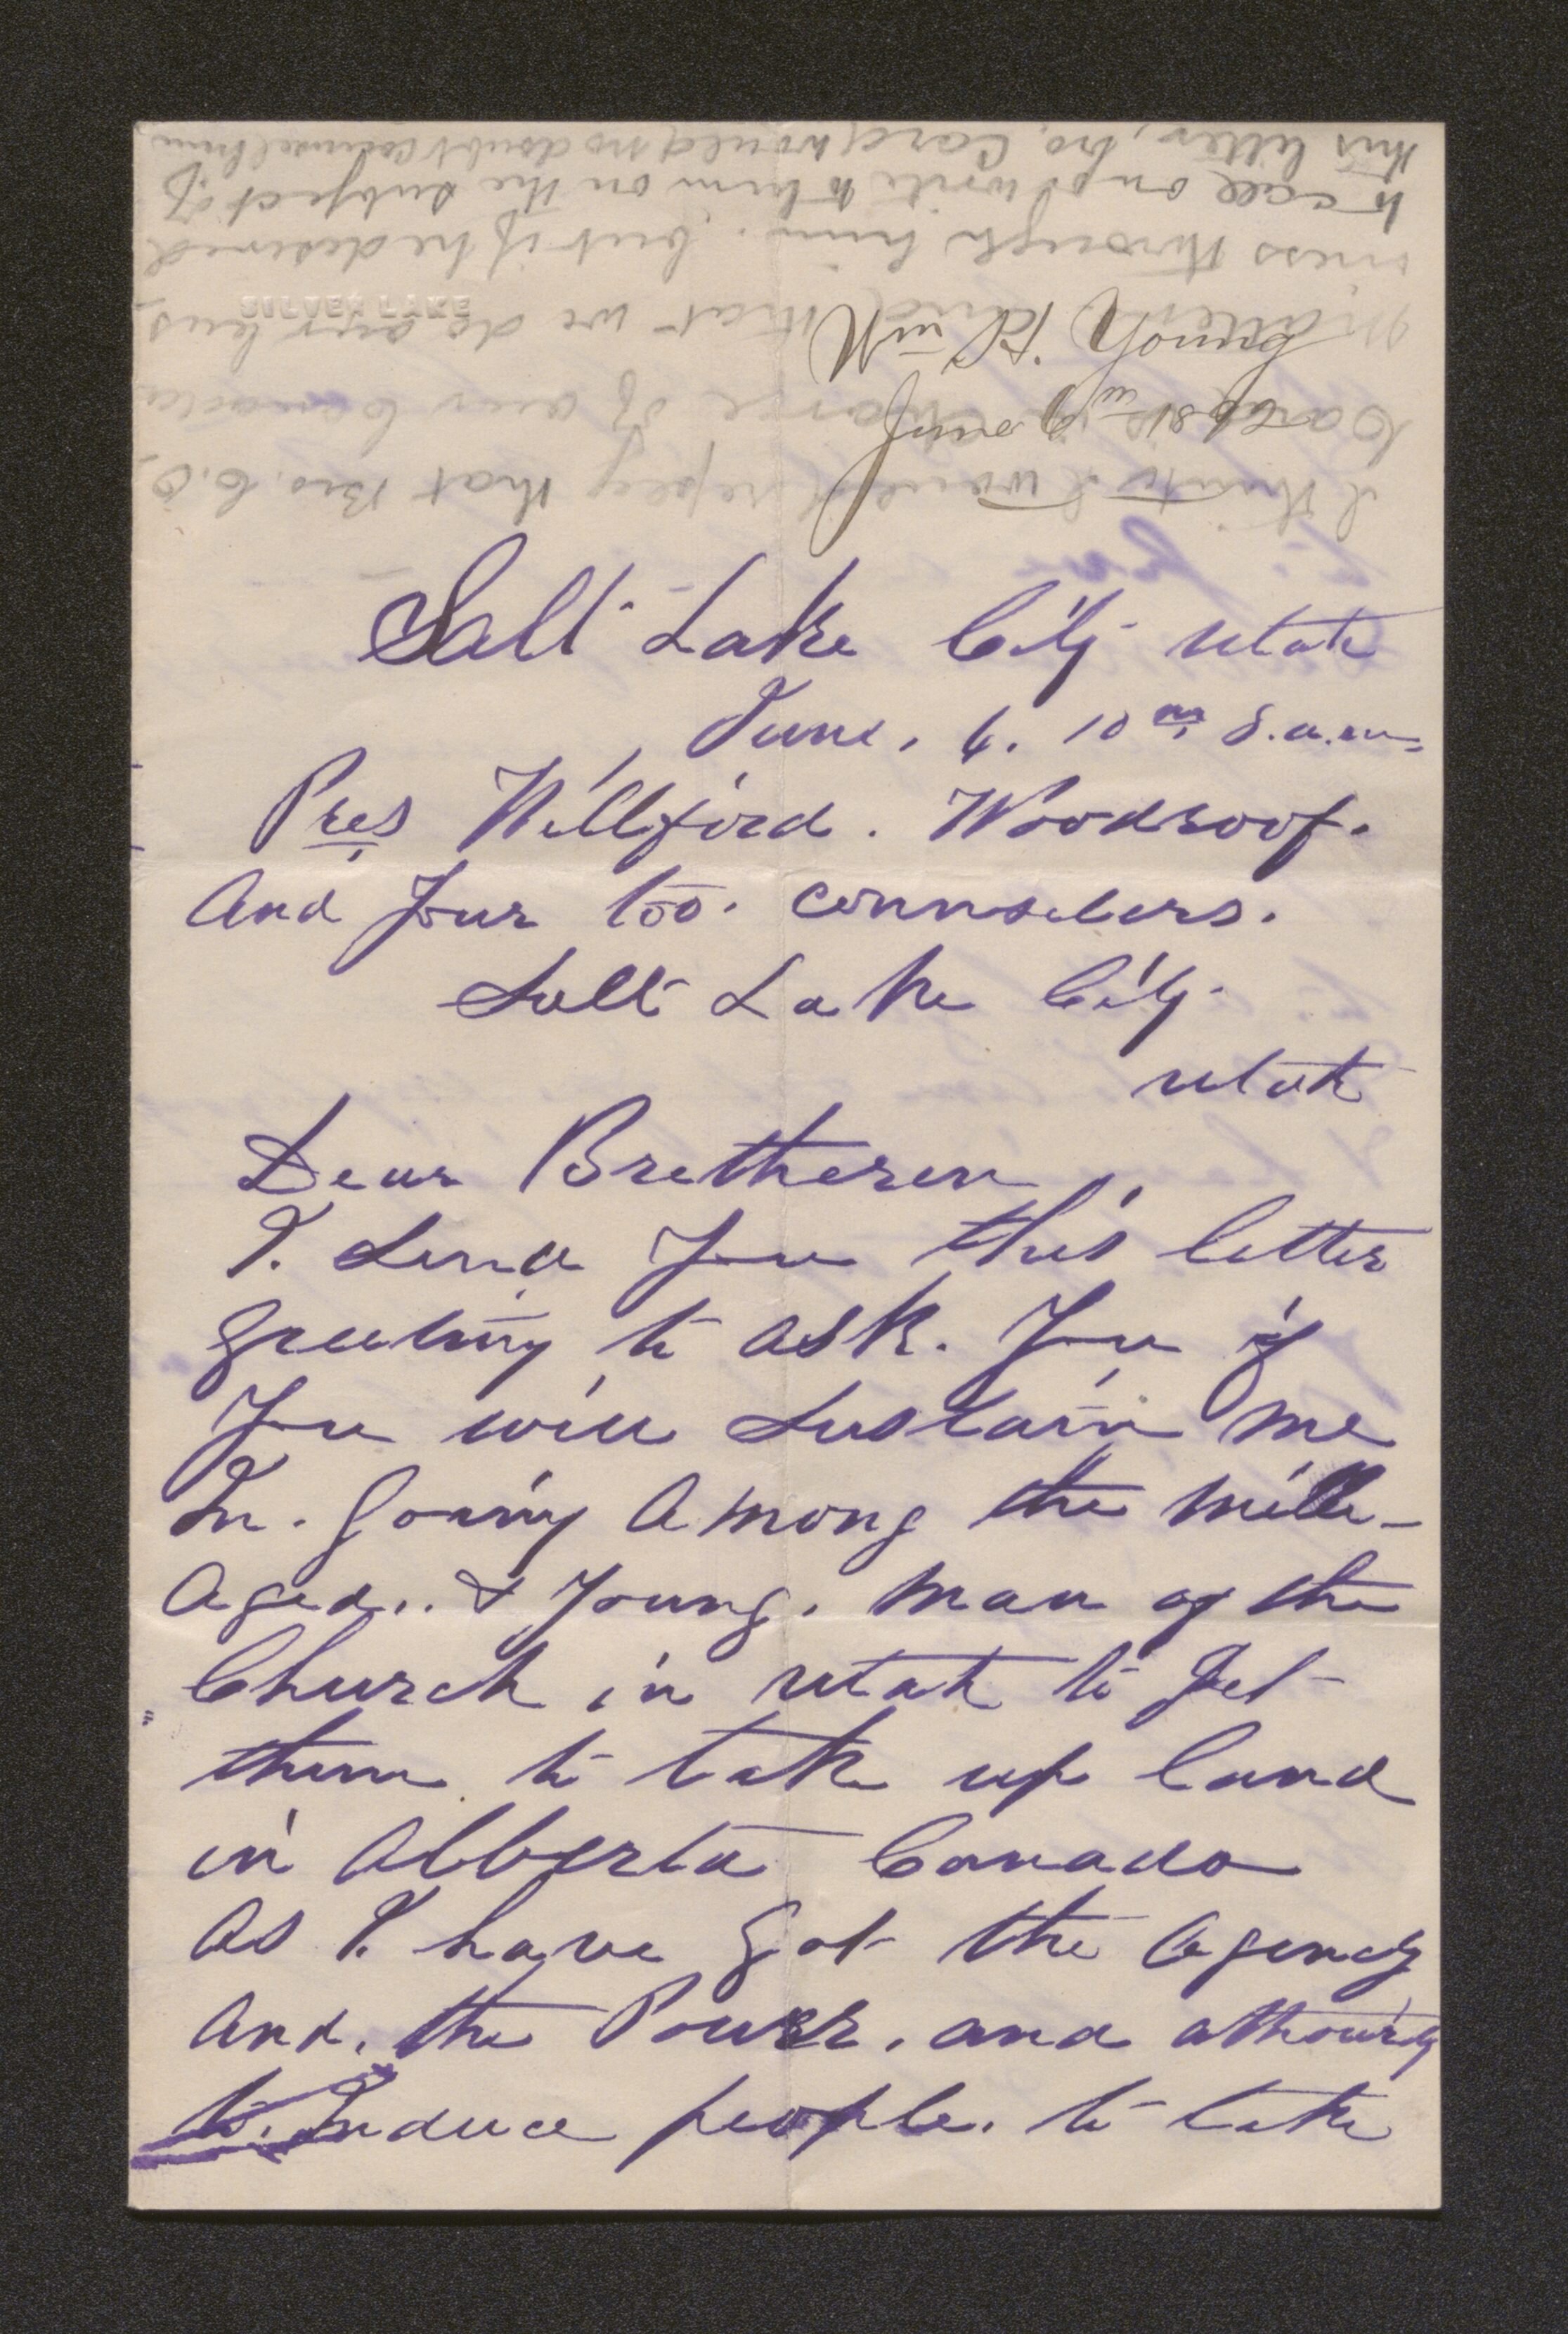 I think I would reply that Bro. C. O.
Card is in charge of our Canada
matters and that we do our busi-
ness through him. but if he desired
to call on or write to him on the subject of
this letter, bro. Card would no doubt counsel him
Young
June 6
Salt Lake City utah
June. 6. 10 m 8.a.m.
Pres Willford. Woodroof.
And your too. counselers.
Salt Lake City.
utah
Dear Bretheren.
I. Send you this letter
greeting to ask. you if
you will Sustain me
In. Going Among the mille-
Aged.. & young. man of the
Church in utah to get
them to take up land
in Allberta Canada
As I. have got the Agency
And. the Power. and athourty
to. Induce people. to take